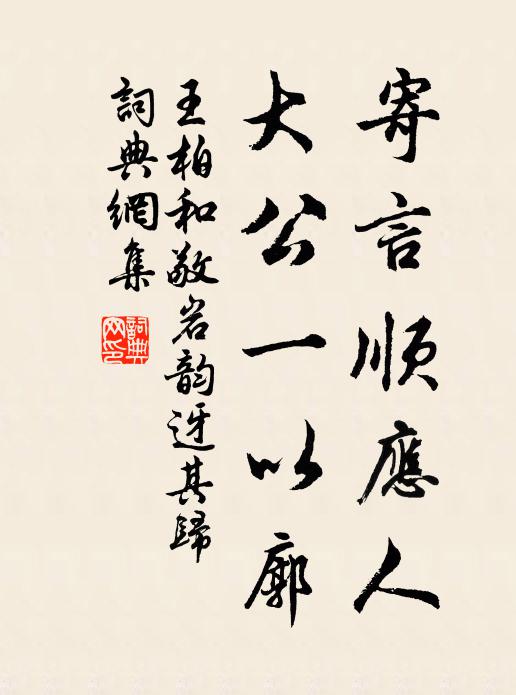 寄言順應人
大公一以廓
王柏和敬岩韵迓其歸
詞典網集
詞典
网印